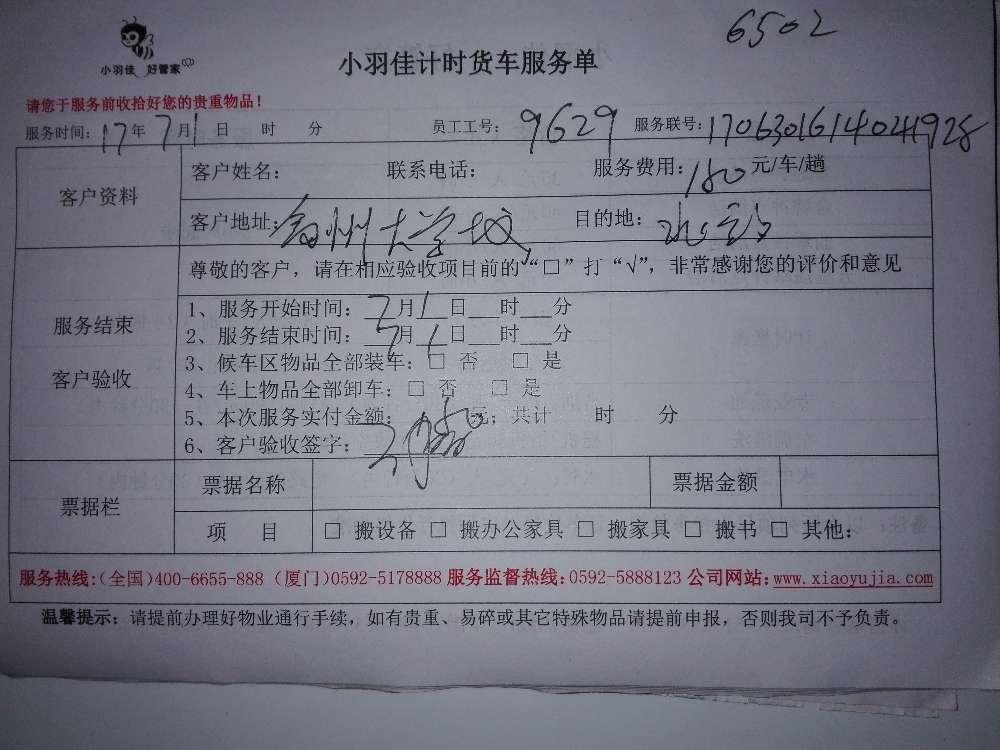 6502
小羽佳 好管家
小羽佳计时货车服务单
请您于服务前收拾好您的贵重物品！
服务时间：17年 7月1日 时 分 员工工号：9629 服务联号：1706301614041928
客户资料
客户姓名： 联系电话： 服务费用：180元/车/趟
客户地址： 州大学城 目的地：
服务结束
客户验收
尊敬的客户，请在相应验收项目前的“□”打“√”，非常感谢您的评价和意见
1、服务开始时间：7月1日___时___分
2、服务结束时间：7月1日___时___分
3、候车区物品全部装车：□ 否 □ 是
4、车上物品全部卸车：□ 否 □ 是
5、本次服务实付金额： 元；共计 时 分
6、客户验收签字：
票据栏
票据名称 票据金额
项 目 □ 搬设备 □ 搬办公家具 □ 搬家具 □ 搬书 □ 其他：
服务热线:(全国)400-6655-888 (厦门)0592-5178888 服务监督热线:0592-5888123 公司网站:www.xiaoyujia.com
温馨提示：请提前办理好物业通行手续，如有贵重、易碎或其它特殊物品请提前申报，否则我司不予负责。